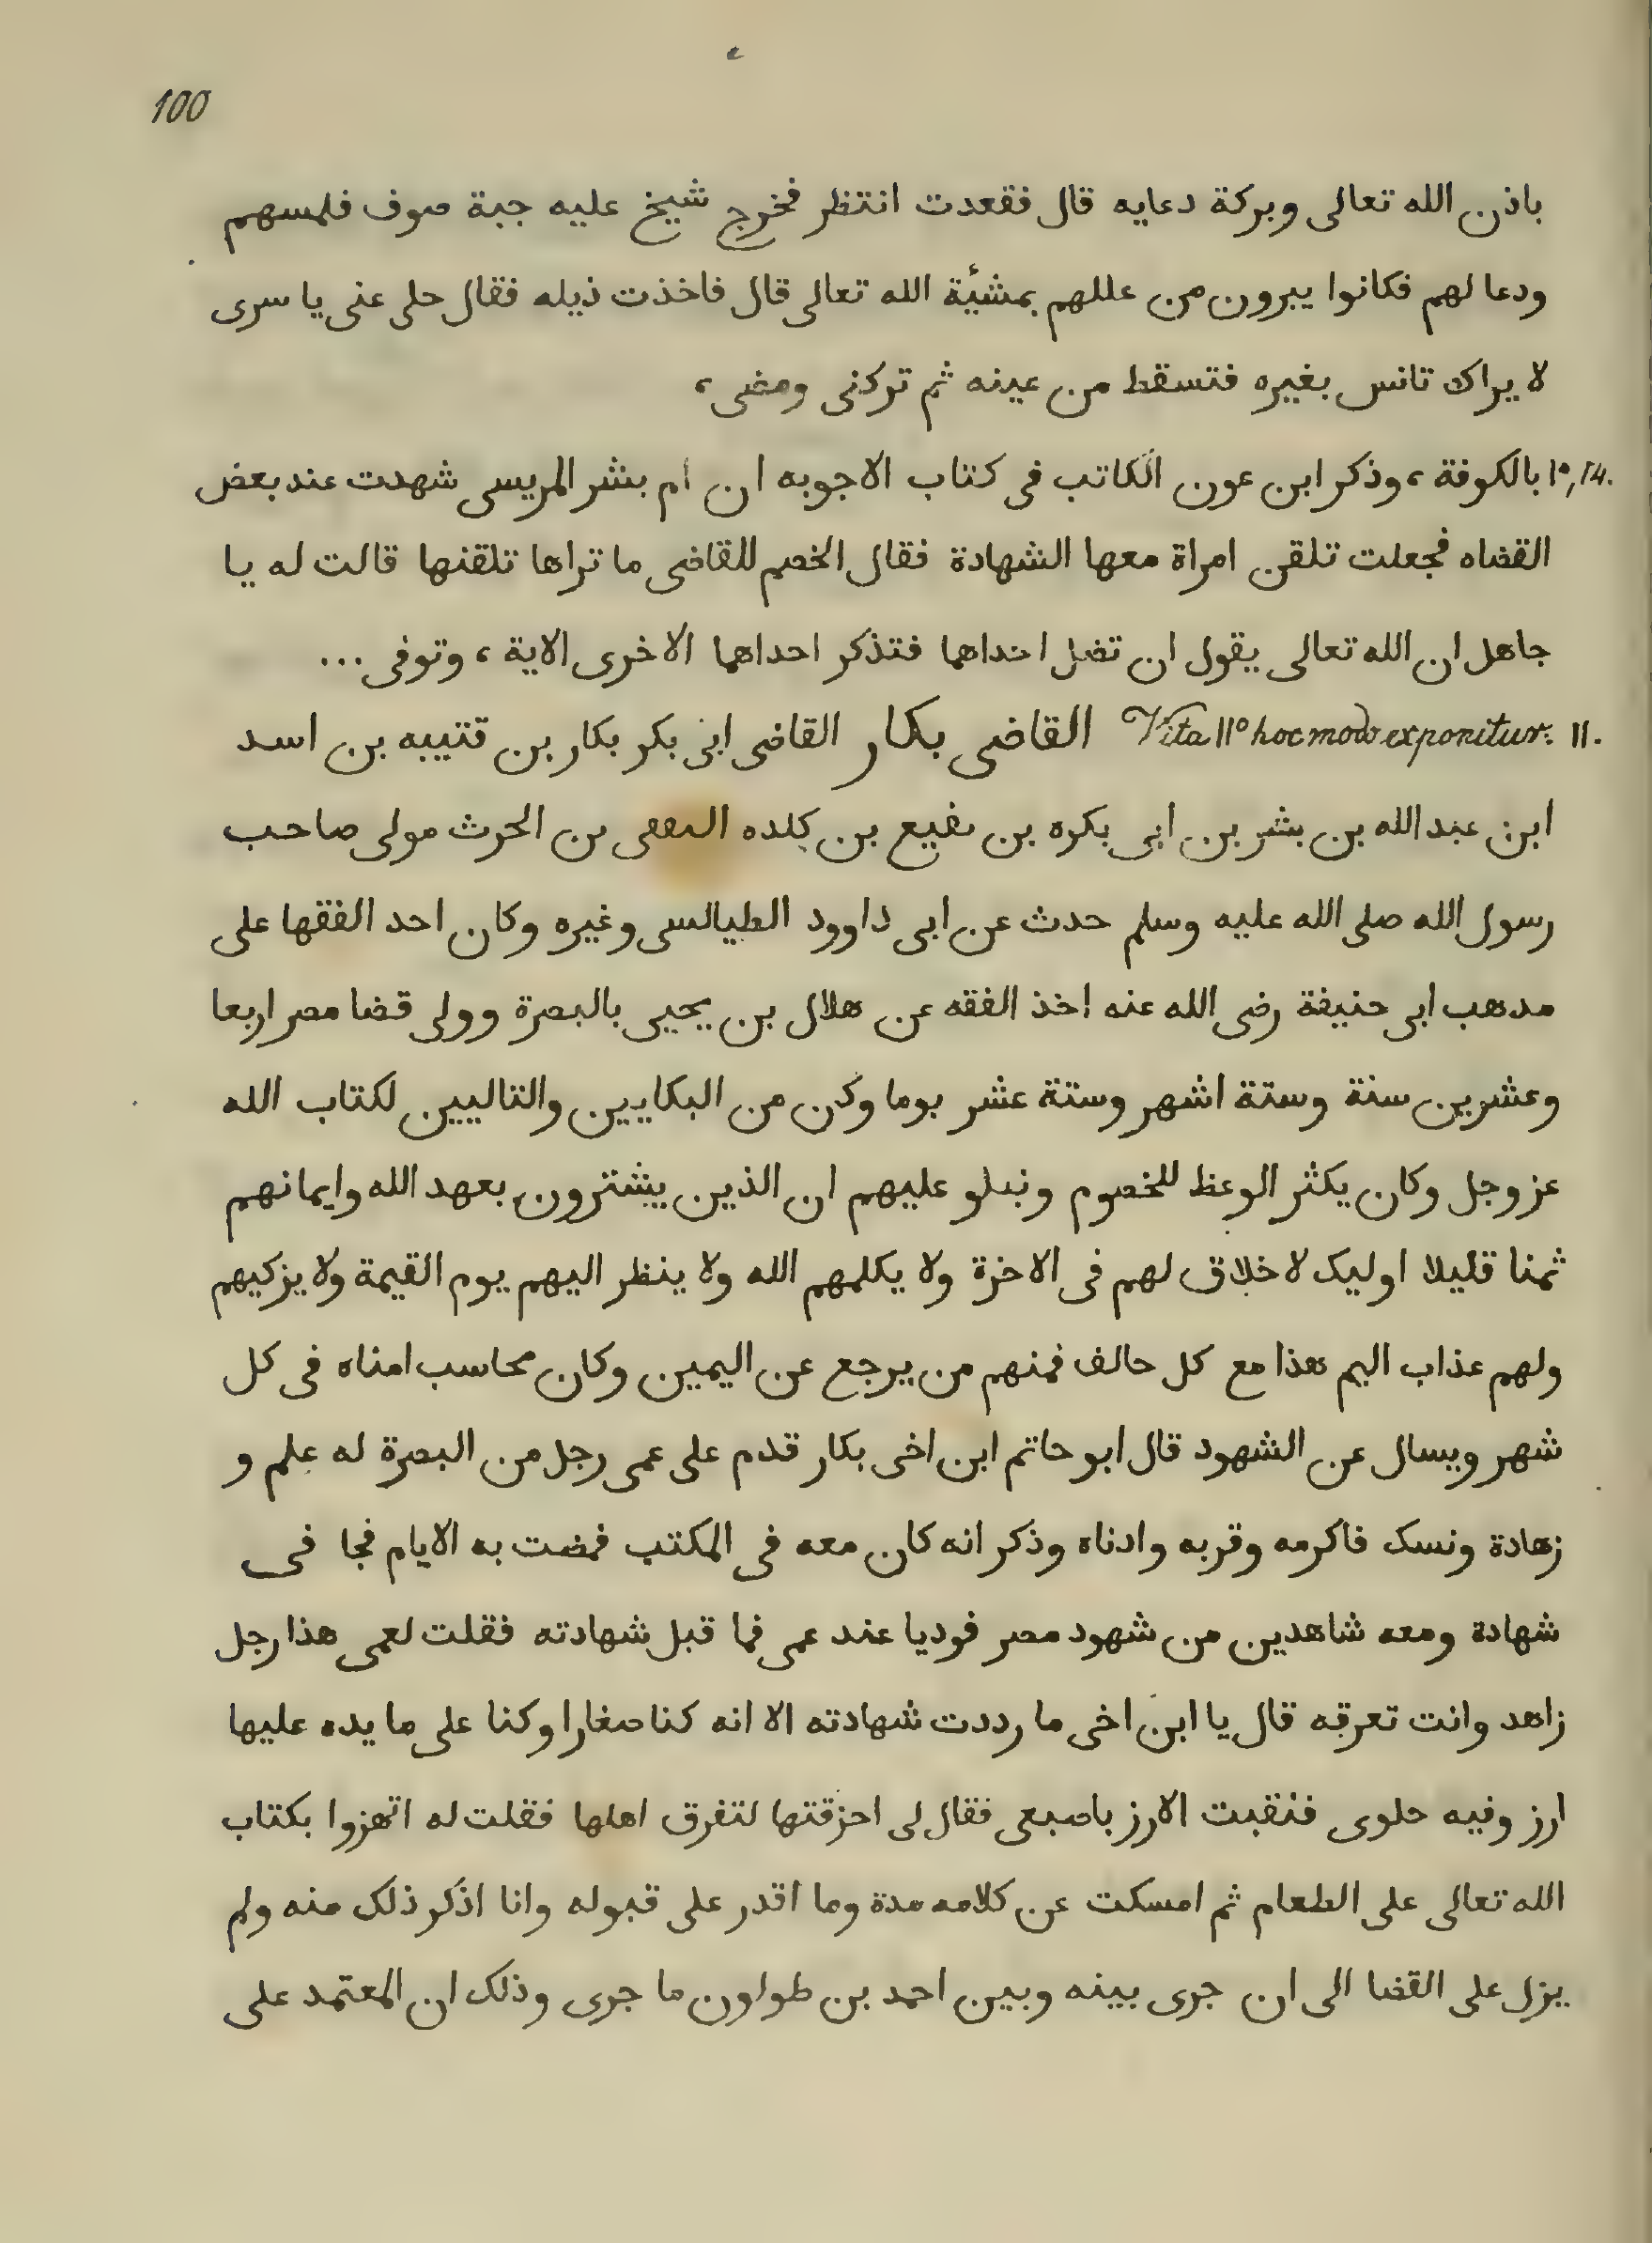 100
باذن الله تعالى وبركة دعايه قال فقعدت انتظر فخرج شيخ عليه جبة صوف فلمسهم
ودعا لهم فكانوا يبرون من عللهم بمشئّة الله تعالى قال فاخذت ذيله فقال حلى عنى يا سرى
لا يراك تانس بغيره فتسقط من عينه ثم تركنى ومضى ،
10,14. بالكوفة ، وذكر ابن عون الكاتب فى كتاب الاجوبه ان ام بشر المريسى شهدت عند بعض
القضاه فجعلت تلقن امراة معها الشهادة فقال الخصم للقاضى ما تراها تلقنها قالت له يا
جاهل ان الله تعالى يقول ان تضل احداهما فتذكر احداهما الاخرى الاية ، وتوفى ...
11. Vita 11º hoc modo exponitur: القاضى بكار القاضى ابى بكر بكار بن قتيبه بن اسد
ابن عبد الله بن بشر بن ابى بكره بن نفيع بن كلده بن الحرث مولى صاحب
رسول الله صلى الله عليه وسلم حدث عن ابى داوود الطيالسى وغيره وكان احد الفقها على
مدهب ابى حنيفة رضى الله عنه اخذ الفقه عن هلال بن يحيى بالبصرة وولى قضا مصر اربعا
وعشرين سنة وستة اشهر وستة عشر بوما وكن من البكايين والتاليين لكتاب الله
عز وجل وكان يكثر الوعظ للخصوم ونبلو عليهم ان الذين يشترون بعهد الله وايمانهم
ثمنا قليلا اوليك لا خلاق لهم فى الاخرة ولا يكلمهم الله ولا ينظر اليهم يوم القيمة ولا يزكيهم
ولهم عذاب اليم هذا مع كل حالف فمنهم من يرجع عن اليمين وكان محاسب امناه فى كل
شهر ويسال عن الشهود قال ابو حاتم ابن اخى بكار قدم على عمى رجل من البصرة له علم و
زهادة ونسك فاكرمه وقربه وادناه وذكر انه كان معه فى المكتب فمضت به الايام فجا فى
شهادة ومعه شاهدين من شهود مصر فوديا عند عمى فما قبل شهادته فقلت لعمى هذا رجل
زاهد وانت تعرفه قال يا ابن اخى ما رددت شهادته الا انه كنا صغارا وكنا على ما يده عليها
ارز وفيه حلوى فنقبت الارز باصبعى فقال لى احزقتها لتفرق اهلها فقلت له اتهزوا بكتاب
الله تعالى على الطعام ثم امسكت عن كلامه مدة وما اقدر على قبوله وانا اذكر ذلك منه ولم
يزل على القضا الى ان جرى بينه وبين احمد بن طولون ما جرى وذلك ان المعتمد على